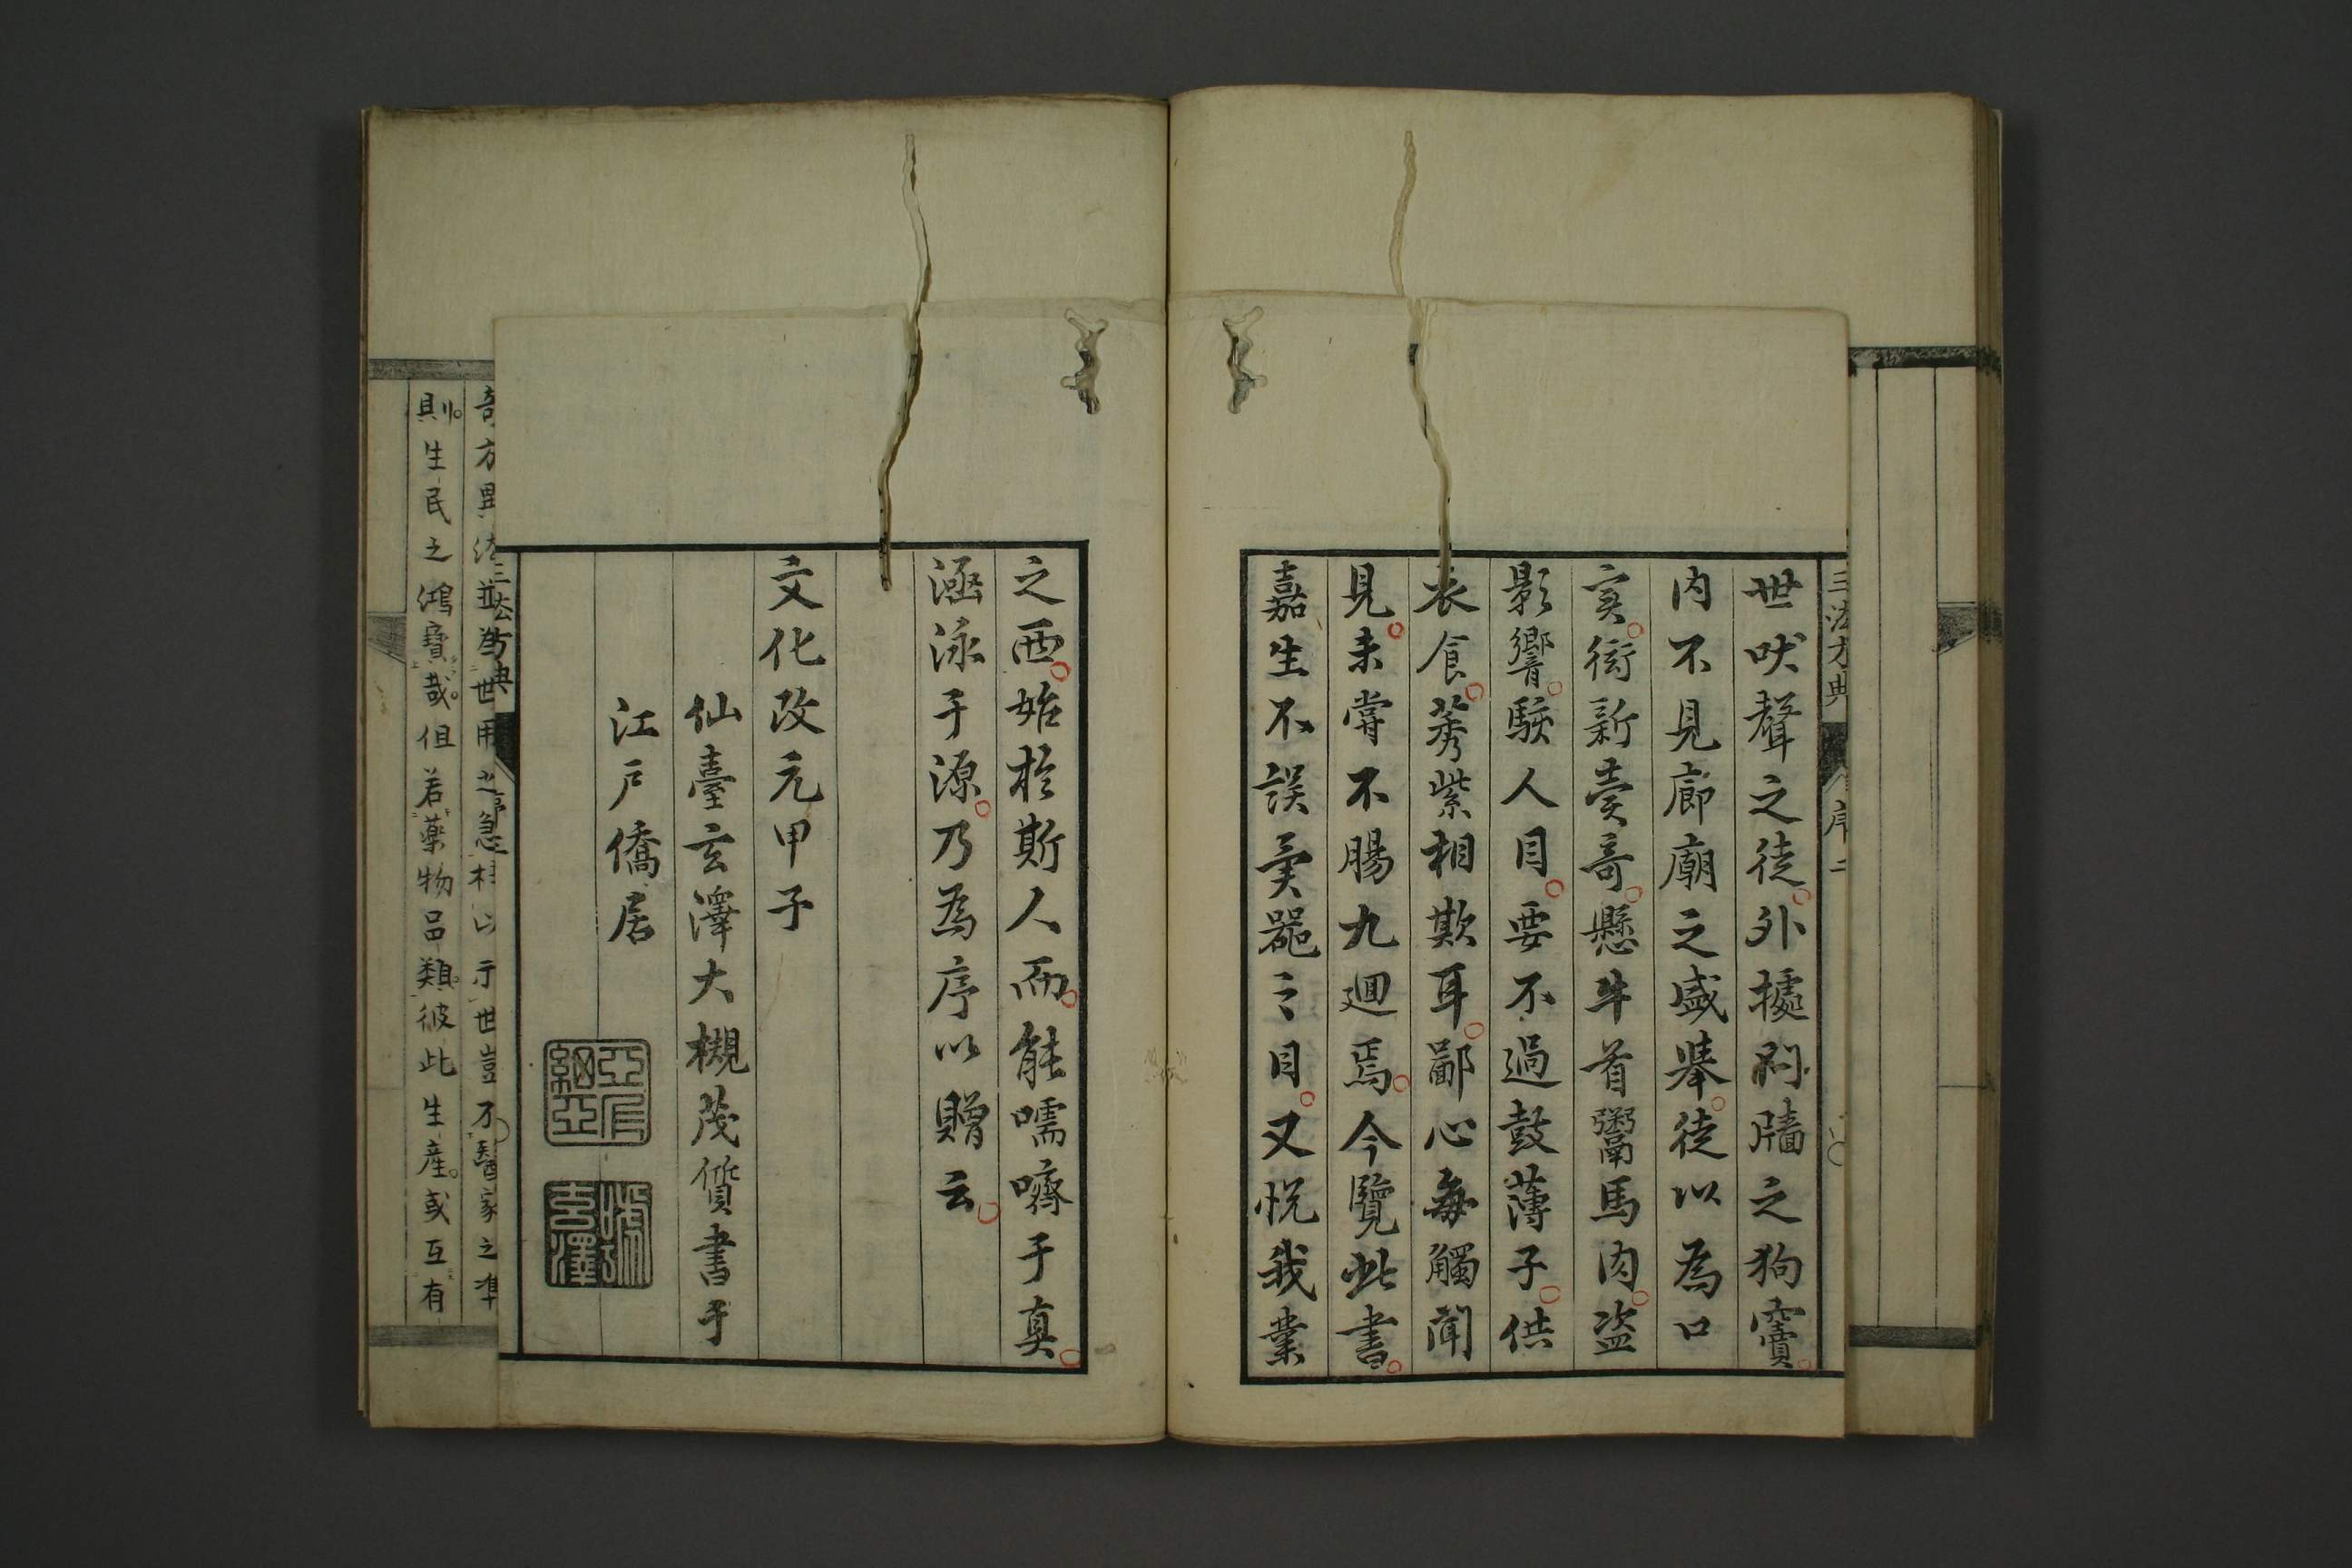 三法方典 序 二
世吠聲之徒外據別牆之狗竇
内不見廊廟之盛舉徒以為口
実衒新賣奇懸牛首鬻馬肉盗
影響駭人目要不過鼓薄子供
衣食莠紫相欺耳鄙心毎觸聞
見未嘗不腸九廻焉今覽此書
嘉生不誤奚器之目又悦我業
之西始於斯人而能嚅嚌于真
涵泳于源乃為序以贈云
文化改元甲子
仙臺玄澤大槻茂質書于
江戸僑居
竒方異法並為世用之急
則生民之鴻寶哉但若藥物品類彼此生産或互有